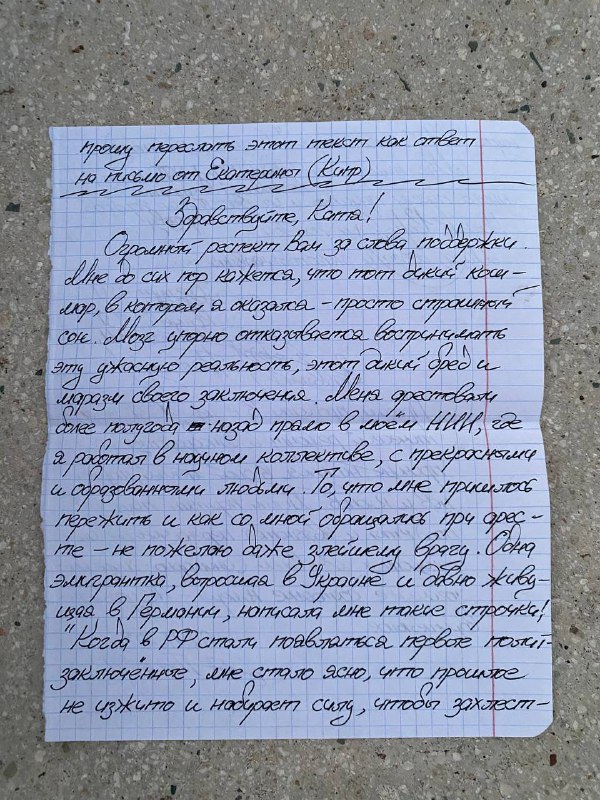 прошу переслать этот текст как ответ
на письмо от Екатерины (Кипр)
Здравствуйте, Катя!
Огромный респект Вам за слова поддержки.
Мне до сих пор кажется, что тот дикий кош-
мар, в котором я оказался – просто страшный
сон. Мозг упорно отказывается воспринимать
эту ужасную реальность, этот дикий бред и
маразм своего заключения. Меня арестовали
более полугода назад прямо в моём НИИ, где
я работал в научном коллективе, с прекрасными
и образованными людьми. То, что мне пришлось
пережить и как со мной обращались при арес-
те – не пожелаю даже злейшему врагу. Одна
эмигрантка, выросшая в Украине и давно живу-
щая в Германии, написала мне такие строчки:
"Когда в РФ стали появляться первые полит-
заключённые, мне стало ясно, что прошлое
не изжито и набирает силу, чтобы захлест-